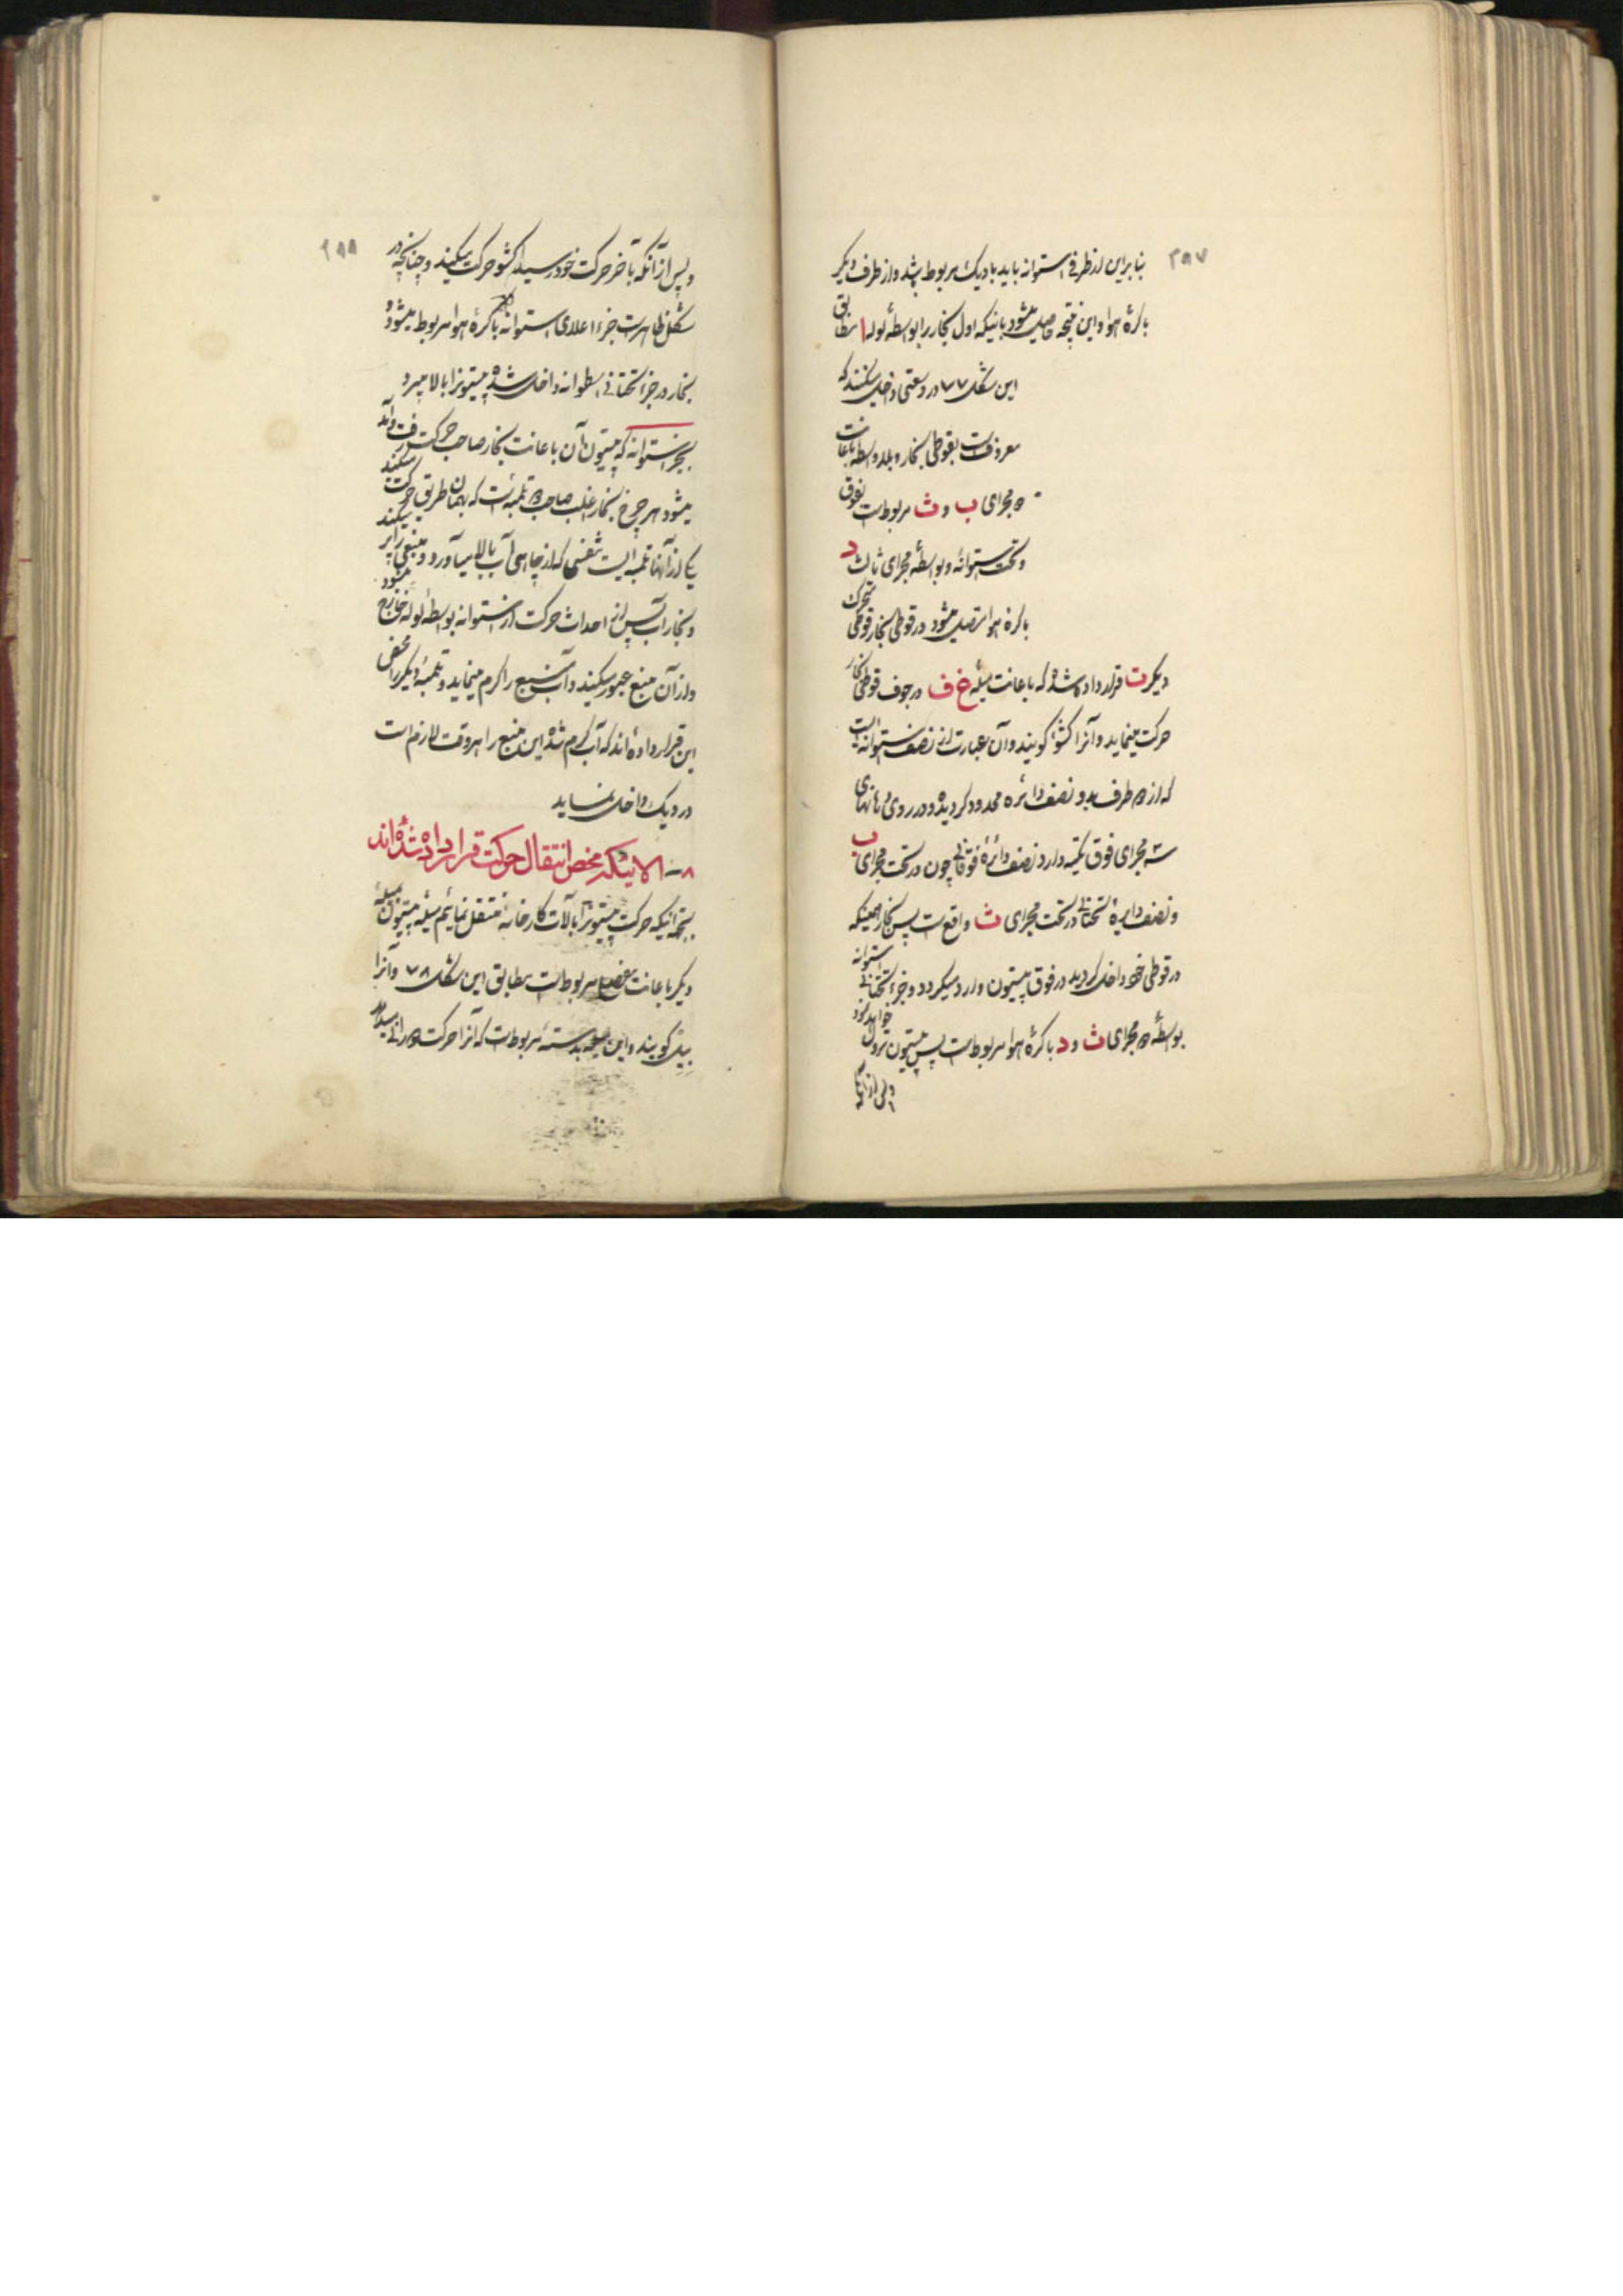 ۲۸۷
بنابراین از طرفی استوانه باید با دیک مربوط باشد و از طرف دیگر
با کرهٔ هوا و این نتیجه حاصل میشود باینکه اول بخار را بواسطهٔ لوله ا مطابق
این شکل ۷۷ در وسعتی داخل میکنند که
معروفست بقوطی بخار و بلاواسطه باعانت
دو مجرای ب و ث مربوطست بفوق
و تحت استوانه و بواسطهٔ مجرای ثالث د
با کره هوا متصل میشود در قوطی بخار قوطی متحرک
دیگر ت قرار داده شده که باعانت میلهٔ غ ف در جوف قوطی بخار
حرکت مینماید و آنرا کشو گویند و آن عبارت از نصف استوانه ایست
که از دو طرف بدو نصف دائره محدود گردیده و در روی دهانهای
سه مجرای فوق تکیه دارد نصف دائرهٔ فوقانی چون در تحت مجرای ب
و نصف دایرهٔ تحتانی در تحت مجرای ث واقع ست پس بخار همینکه
در قوطی خود داخل گردید در فوق پیستون وارد میگردد و جزء تحتانی استوانه
بواسطهٔ دو مجرای ث و د با کرهٔ هوا مربوطست پس پیستون نزول خواهد نمود
ولی از آنکه
۲۸۸
و پس از آنکه بآخر حرکت خود رسید کشو حرکت میکند و چنانچه در
شکل ظاهرست جزء اعلای استوانه با کرهٔ هوا مربوط میشود و
بخار در جزء تحتانی اسطوانه داخل شده پیستونرا بالا میبرد
بجز استوانه که پیستون آن باعانت بخار صاحب حرکت رفت و آمد
میشود هر چرخ بخار اغلب صاحب دو تلمبه است که بهمان طریق حرکت میکند
یکی از آنها تلمبه ایست تنفسی که از چاهی آب بالا میآورد و منبعی را پر میکند
و بخار آب پس از احداث حرکت از استوانه بواسطهٔ لوله خارج میشود
و از آن منبع عبور میکند و آب منبع را گرم مینماید و تلمبهٔ دیگر را محض
این قرار داده‌اند که آب گرم شده این منبع را هر وقت لازم است
در دیک داخل نماید
۸ – آلاتیکه محض انتقال حرکت قرار داده شده‌اند
بجهة اینکه حرکت پیستونرا بآلات کارخانه منتقل نمائیم میلهٔ پیستون بمیلهٔ
دیگر باعانت مفصل مربوط است مطابق این شکل ۷۸ و آنرا
بیل گویند و این میله بدستهٔ مربوطست که آنرا حرکت دورانی میدهد